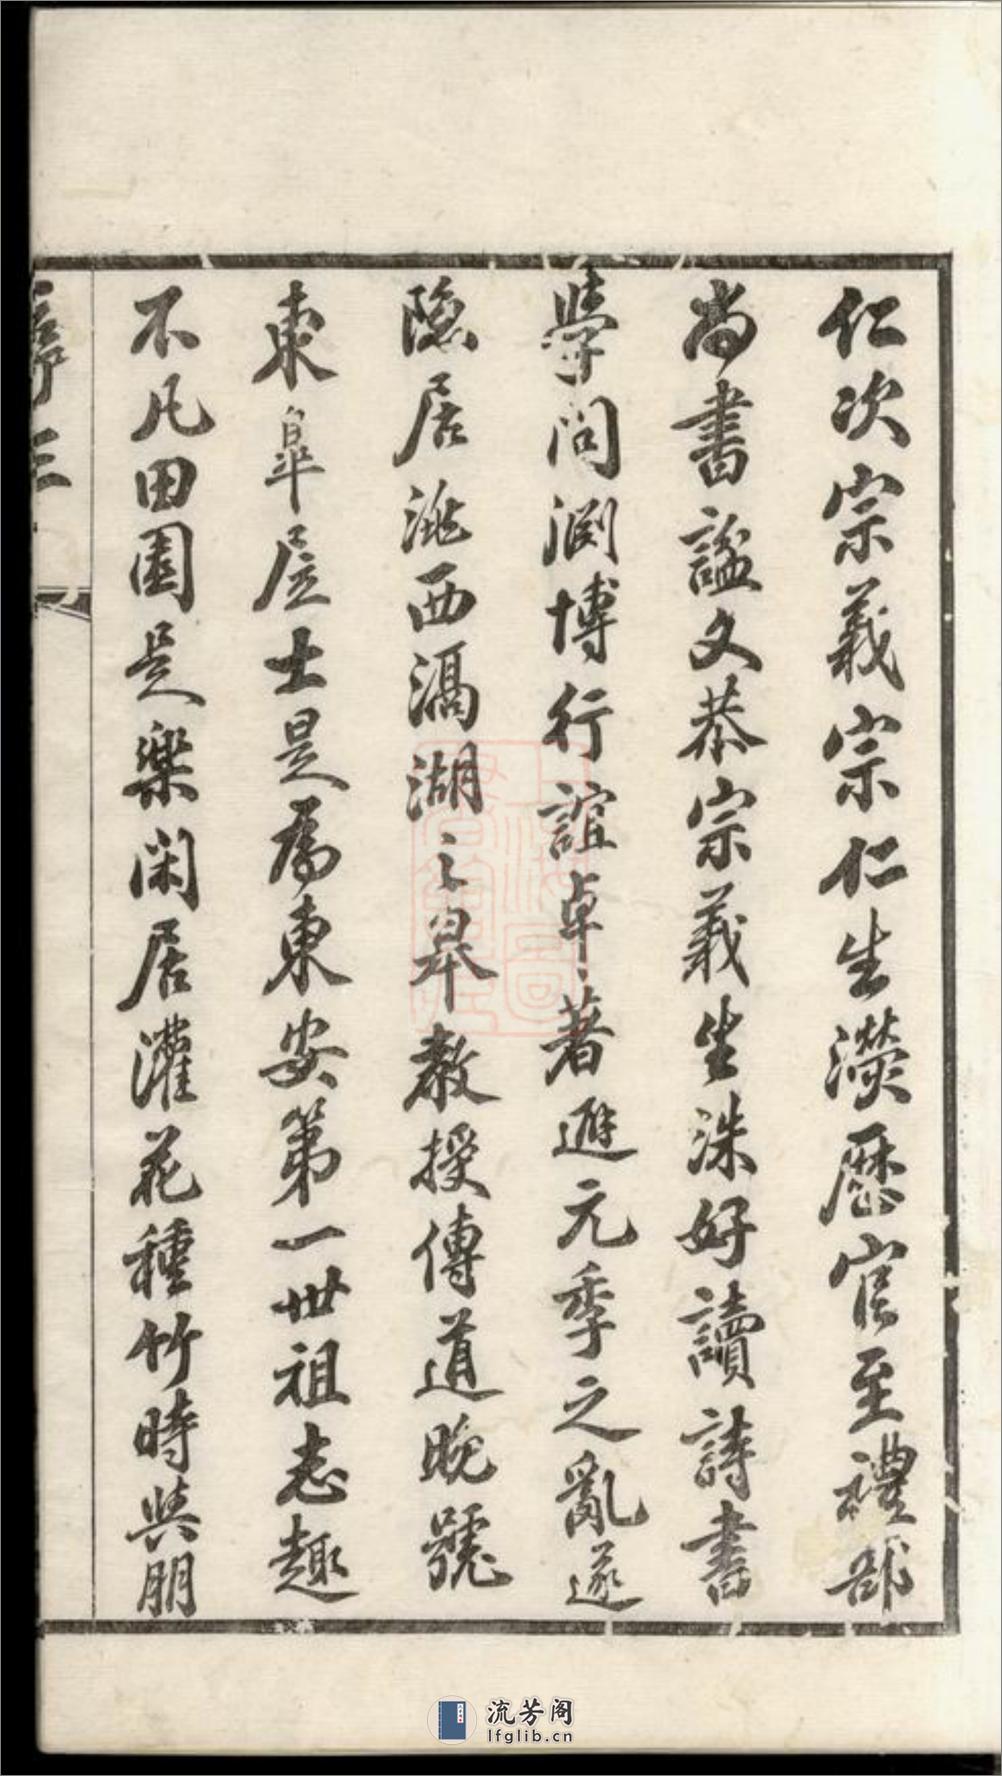 仁次宗義宗仁生濙歷官至禮部
尚書謚文恭宗義生洙好讀詩書
學問淵博行誼卓〻著遯元季之亂遂
隱居洮西滆湖之皋教授傳道晚號
東皋居士是為東安第一世祖志趣
不凡田園是樂閑居灌花種竹時與朋
序三
流芳阁
lfglib.cn